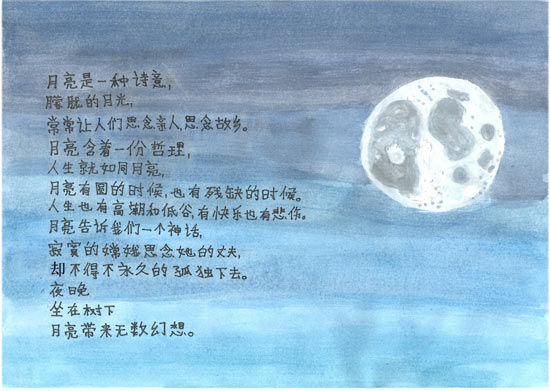 月亮是一种诗意,
朦胧的月光,
常常让人们思念亲人,思念故乡。
月亮含着一份哲理,
人生就如同月亮,
月亮有圆的时候,也有残缺的时候。
人生也有高潮和低谷,有快乐也有悲伤。
月亮告诉我们一个神话,
寂寞的嫦娥思念她的丈夫,
却不得不永久的孤独下去。
夜晚
坐在树下
月亮带来无数幻想。